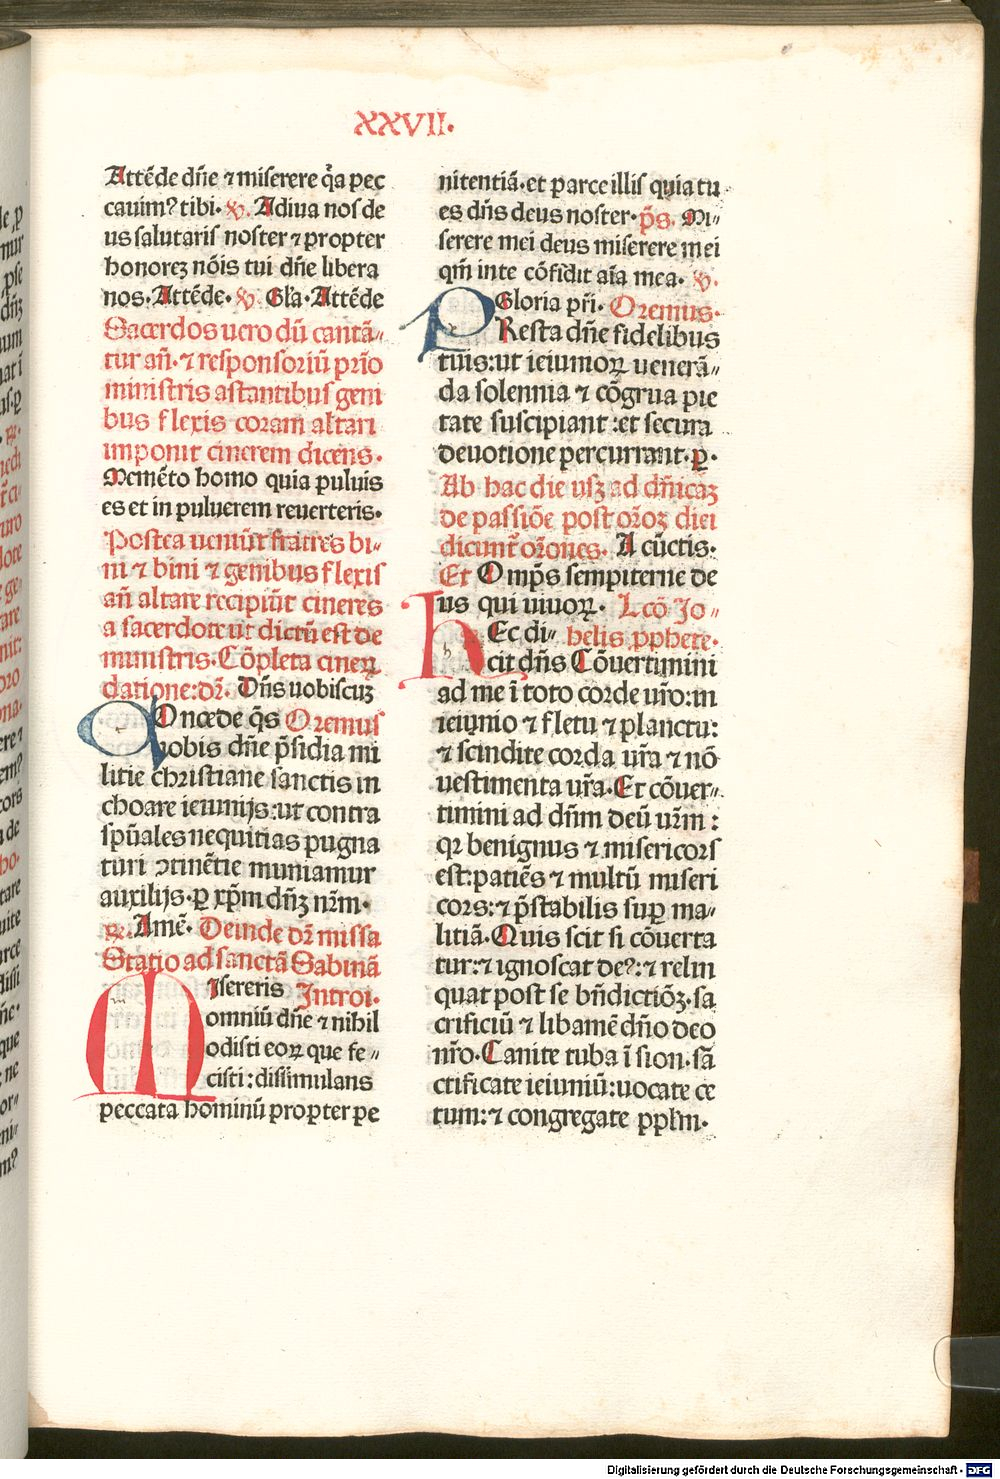 XXVII.
Attẽde dñe ⁊ miserere q̃a pec
cauim⁹ tibi. ℣. Adiua nos de
us salutaris noster ⁊ propter
honorez nõis tui dñe libera
nos. Attẽde. ℣. Gl̃a. Attẽde
Sacerdos uero dũ cantã-
tur añ. ⁊ responsoriũ prĩo
ministris astantibus geni
bus flexis coram altari
imponit cinerem dicens.
Memẽto homo quia puluis
es et in puluerem reuerteris.
Postea ueniũt fratres bi-
ni ⁊ bini ⁊ genibus flexis
añ altare recipiũt cineres
a sacerdote ut dictũ est de
ministris. Cõpleta cineꝝ
datione: dr̃. Dñs uobiscuz
COncede q̃s Oremus
nobis dñe p̃sidia mi
litie christiane sanctis in
choare ieiunijs: ut contra
spũales nequitias pugna
turi ꝯtinẽtie muniamur
auxilijs. ꝑ xp̃m dñz nr̃m.
℟. Amẽ. Deinde dr̃ missa
Statio ad sanctã Sabinã
MIsereris Introi.
omniũ dñe ⁊ nihil
odisti eoꝝ que fe-
cisti: dissimulans
peccata hominũ propter pe
nitentiã. et parce illis quia tu
es dñs deus noster. p̃s. Mi-
serere mei deus miserere mei
qm̃ in te cõfidit aĩa mea. ℣.
Gloria pr̃i. Oremus.
PResta dñe fidelibus
tuis: ut ieiunioꝝ uenerã-
da solennia ⁊ cõgrua pie
tate suscipiant: et secura
deuotione percurrant. ꝑ.
Ab hac die usqꝫ ad dñicaz
de passiõe post or̃oz diei
dicunt̃ or̃ones. A cũctis.
Et Omp̃s sempiterne de
us qui uiuoꝝ. Lcõ Jo-
hEc di- helis ꝓphete.
cit dñs Cõuertimini
ad me ĩ toto corde ur̃o: in
ieiunio ⁊ fletu ⁊ planctu:
⁊ scindite corda ur̃a ⁊ nõ
uestimenta ur̃a. Et cõuer-
timini ad dñm deũ ur̃m:
qr benignus ⁊ misericors
est: patiẽs ⁊ multũ miseri
cors: ⁊ p̃stabilis suꝑ ma-
litiã. Quis scit si cõuerta
tur: ⁊ ignoscat de⁹: ⁊ relin
quat post se bñdictiõz. sa
crificiũ ⁊ libamẽ dño deo
nr̃o. Canite tuba ĩ sion. sã
ctificate ieiuniũ: uocate ce
tum: ⁊ congregate ppl̃m.
Digitalisierung gefördert durch die Deutsche Forschungsgemeinschaft - DFG